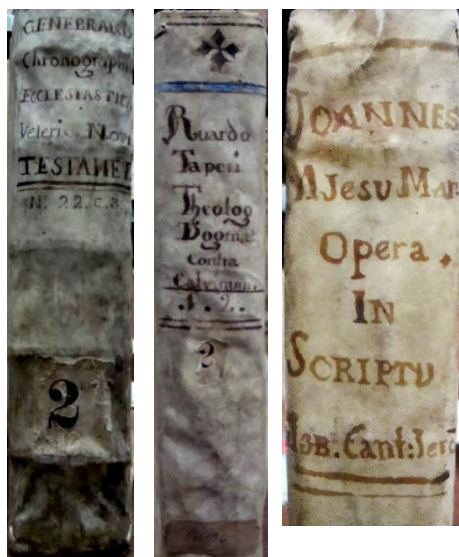 GENEBRARD
Chronographi
ECCLESIASTICI
Veteris Novi
TESTAMET
N. 22. C. 8.
2
Ruardo
Taperi
Theolog
Dogmat
contra
Calvinum.
1. 2.
2
JOANNES
A Jesu Mar
Opera.
IN
SCRIPTU
JOB. Cant: Jere